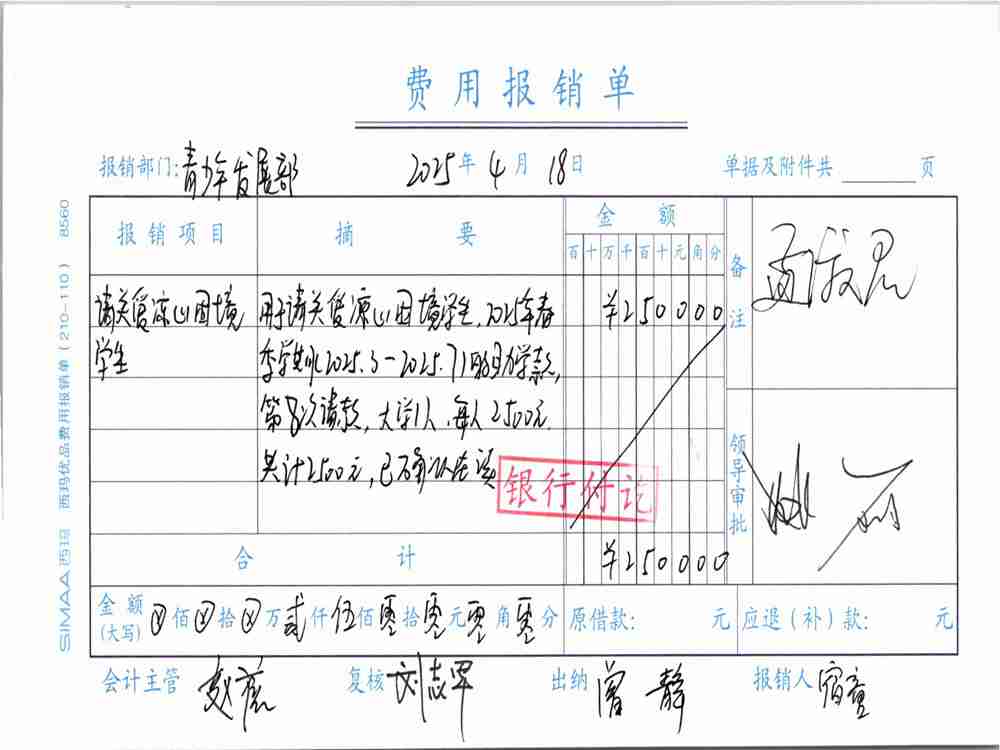 费用报销单
报销部门:青少年发展部 2025年4月18日 单据及附件共 页
报销项目 摘要 金额 备注
百十万千百十元角分
请关爱凉山困境 用于请关爱凉山困境学生,2025年春 ¥250000
学生 季学期(2025.3-2025.7)助学款,
第8次请款,大学1人,每人2500元.
共计2500元,已
银行付讫
领导审批
合计 ¥250000
金额(大写) ⊗佰⊗拾⊗万贰仟伍佰零拾零元零角零分 原借款: 元 应退(补)款: 元
会计主管 复核 刘志军 出纳 曾静 报销人 宿童
SIMAA西玛 西玛优品费用报销单(210-110) 8560